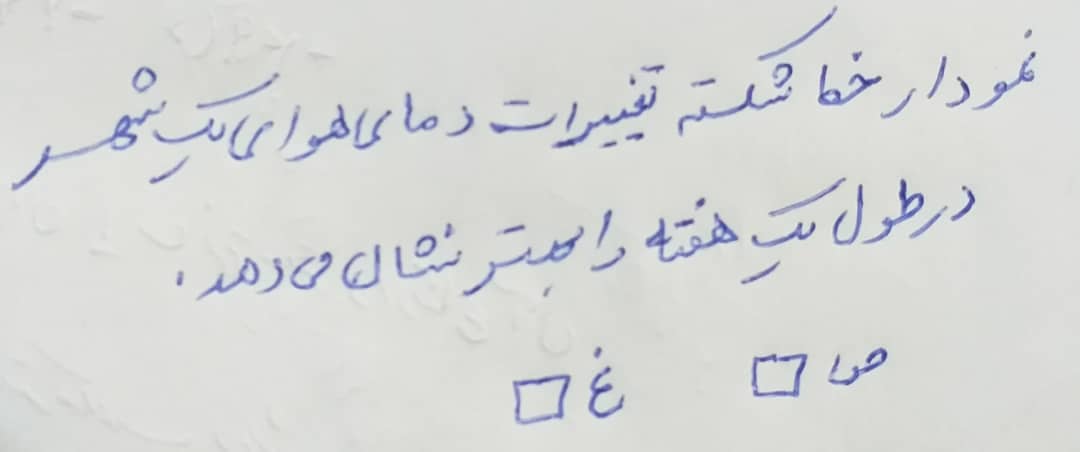 نمودار خط شکسته تغییرات دمای هوای یک شهر
در طول یک هفته را بهتر نشان می دهد.
ص □ غ □